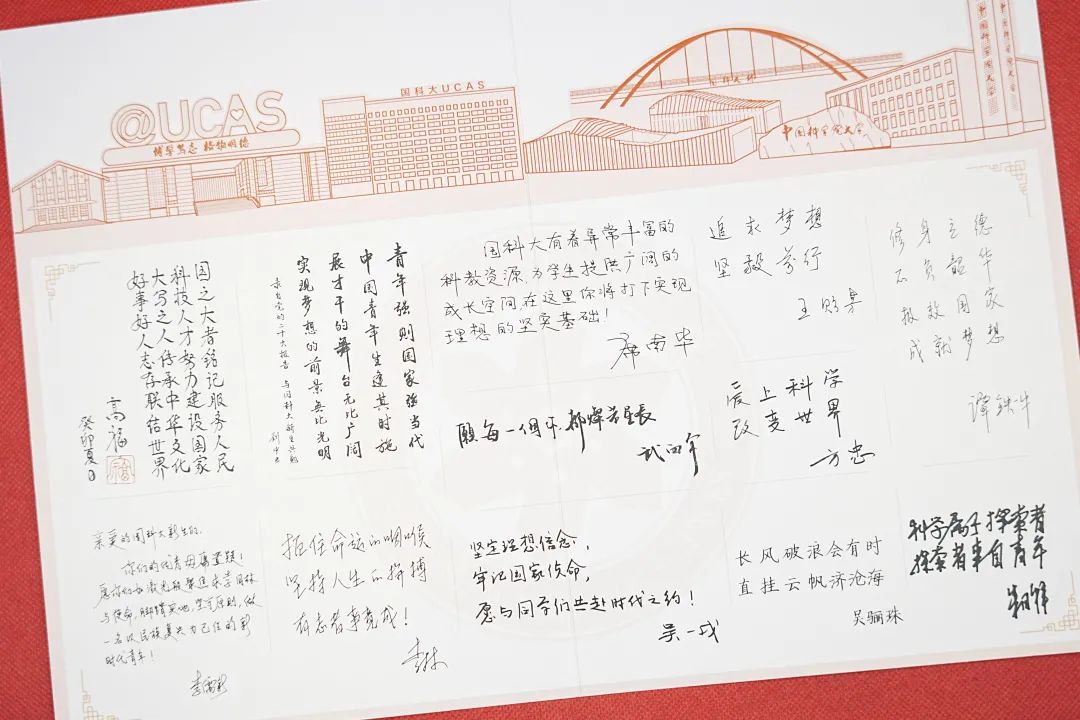 @UCAS
博学笃志 格物明德
国科大UCAS
中国科学院大学
中国科学院大学
国之大者铭记服务人民
科技人才努力建设国家
大写之人传承中华文化
好事好人志存联结世界
高福
癸卯夏日
青年强则国家强当代
中国青年生逢其时施
展才干的舞台无比广阔
实现梦想的前景无比光明
录自党的二十大报告 与国科大新生共勉
国科大有着异常丰富的
科教资源,为学生提供广阔的
成长空间,在这里你将打下实现
理想的坚实基础!
席南华
追求梦想
坚毅前行
王贻芳
修身立德
不负韶华
报效国家
成就梦想
谭铁牛
愿每一个你,都灿若星辰
武向平
爱上科学
改变世界
方忠
亲爱的国科大新生们,
你们的优秀毋庸置疑!
愿你们如激光般聚焦求学目标
与使命,脚踏实地,坚守原则,做
一名以民族复兴为己任的新
时代青年!
李儒新
扼住命运的咽喉
坚持人生的拼搏
有志者事竟成!
李林
坚定理想信念,
牢记国家使命,
愿与同学们共赴时代之约!
吴一戎
长风破浪会有时
直挂云帆济沧海
吴骊珠
科学属于探索者
探索者来自青年
朱日祥